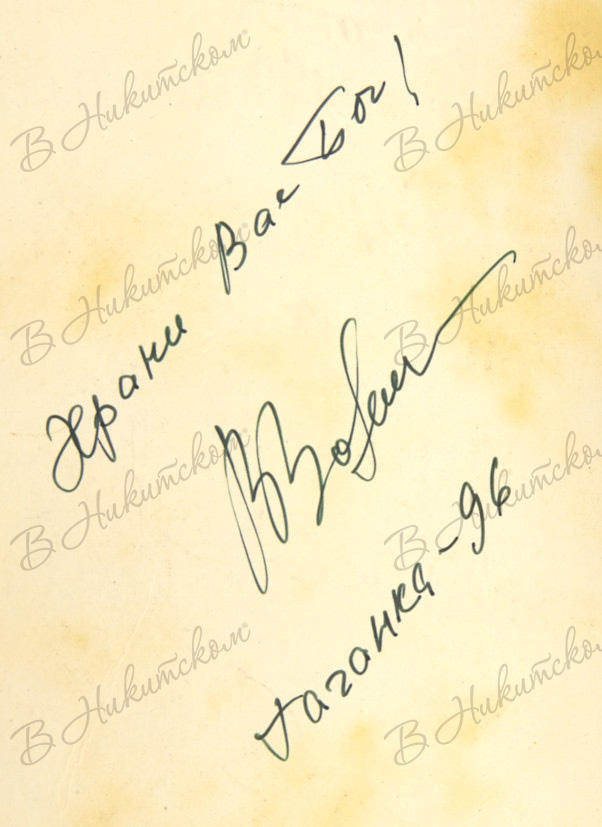 В Никитском
В Никитском
Храни Вас Бог!
В Никитском
В Никитском
В Никитском
В Никитском
Таганка-96
В Никитском
В Никитском